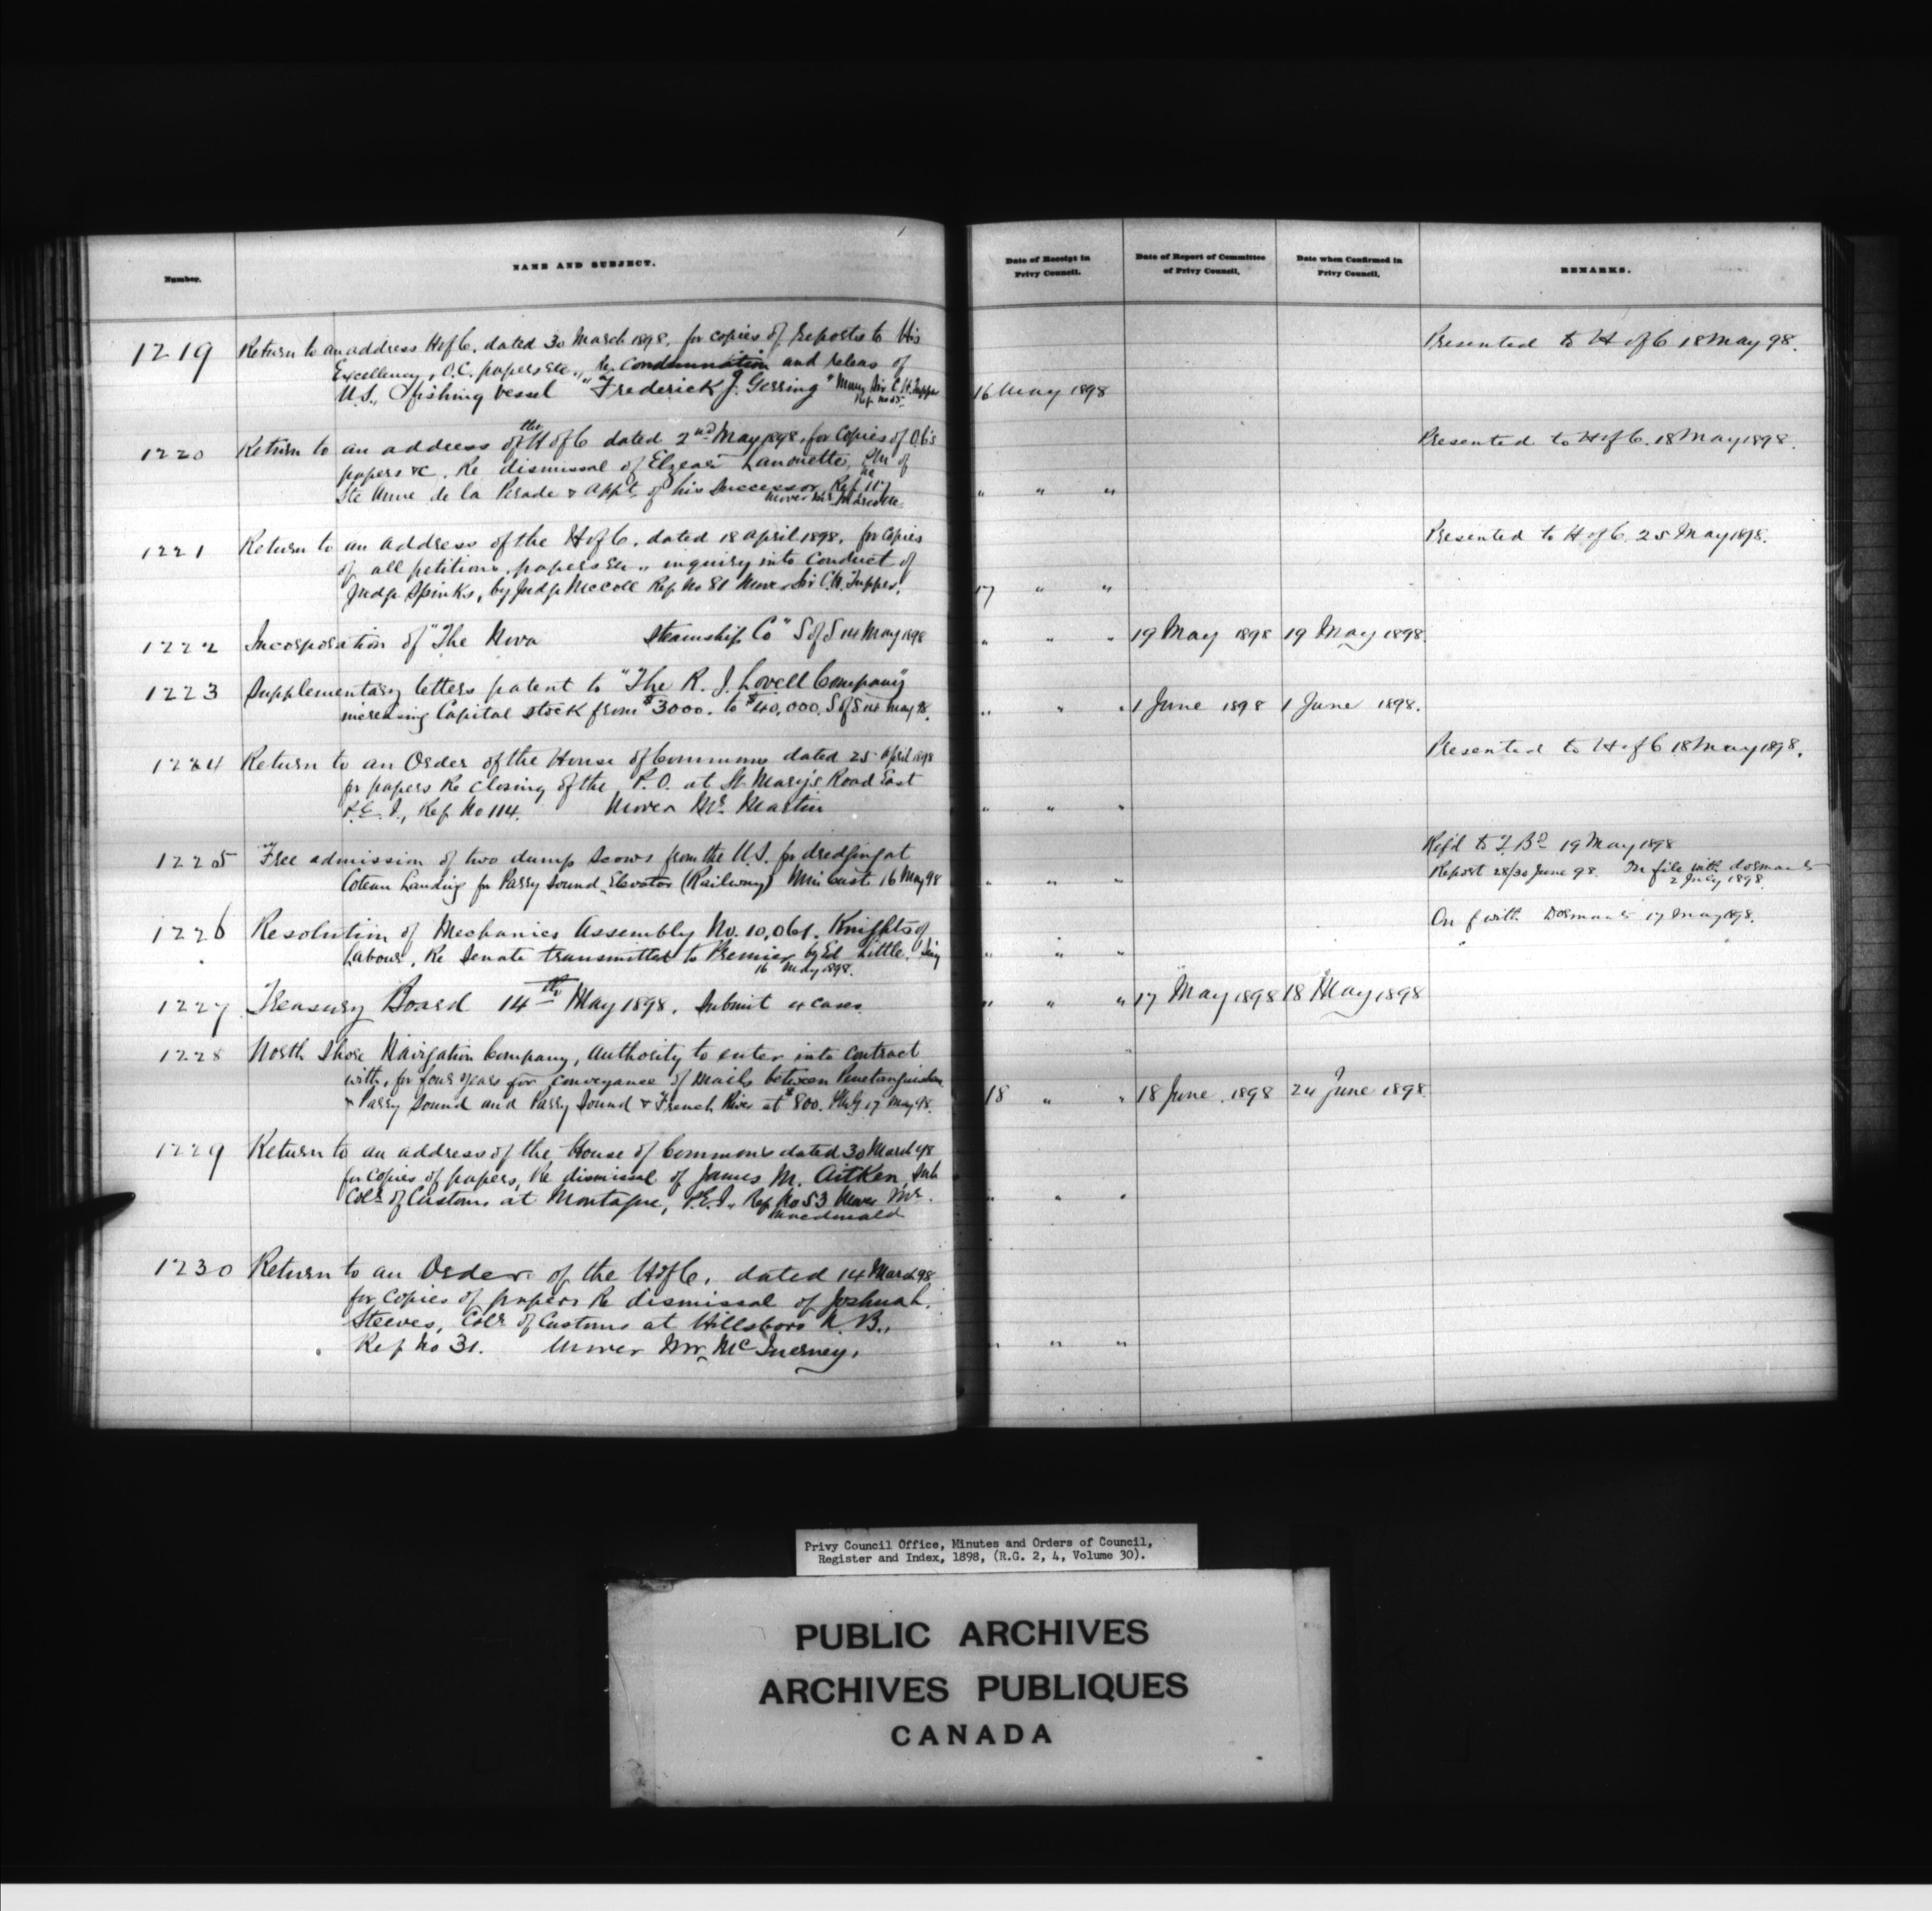 Number.
NAME AND SUBJECT.
Date of Receipt in Privy Council.
Date of Report of Committee of Privy Council.
Date when Confirmed in Privy Council.
REMARKS.
1219 Return to an address H of C. dated 30 March 1898, for copies of reports to His
Excellency, O.C. papers etc., Re condemnation and releas of
U.S. fishing vessel "Frederick J. Gerring" Mover Sir C.H. Tupper
Ref no 85
16 May 1898
Presented to H of C 18 May 98.
1220 Return to an address of the H of C dated 2nd May 1898, for Copies of O.C's
papers &c. Re dismissal of Elzear Lanouette, P.M. of
Ste Anne de la Perade & appt. of his Successor, Ref no 117
Mover Mr Marcotte
" " "
Presented to H of C. 18 May 1898.
1221 Return to an address of the H of C. dated 18 April 1898, for Copies
of all petitions, papers &c., inquiry into Conduct of
Judge Spinks, by Judge McColl Ref No 81 Mover Sir C.H. Tupper.
17 " "
Presented to H of C. 25 May 1898.
1222 Incorporation of "The Nova Steamship Co" S of S 14 May 1898
" " " 19 May 1898 19 May 1898.
1223 Supplementary letters patent to "The R. J. Lovell Company"
increasing Capital Stock from $3000. to $40,000. S of S 14 May 98.
" " " 1 June 1898 1 June 1898.
1224 Return to an Order of the House of Commons dated 25 April 1898
for papers Re Closing of the P.O. at St Mary's Road East
P.E.I., Ref No 114. Mover Mr. Martin
" " "
Presented to H of C 18 May 1898.
1225 Free admission of two dump Scows from the U.S. for dredging at
Coteau Landing for Parry Sound Elevator (Railway) Min Cust. 16 May 98
" " "
Ref'd to T. Bd 19 May 1898
Report 28/30 June 98. In file with dormants
2 July 1898.
1226 Resolution of Mechanics Assembly No. 10,061. Knights of
Labour, Re Senate transmitted to Premier by Ed Little,
16 May 1898.
" " "
On f with Dormants 17 May 1898.
1227 Treasury Board 14th May 1898. Submit 4 cases.
" " " 17 May 1898 18 May 1898
1228 North Shore Navigation Company, Authority to enter into Contract
with, for four years for conveyance of Mails between Penetanguishene
& Parry Sound and Parry Sound & French River at $800. PMG 17 May 98.
18 " " 18 June 1898 24 June 1898
1229 Return to an address of the House of Commons dated 30 March 98
for Copies of papers, Re dismissal of James M. Aitken, Sub
Colr of Customs at Montague, P.E.I., Ref No 53 Mover Mr.
Macdonald
" " "
1230 Return to an Order of the H of C, dated 14 March 98
for Copies of papers Re dismissal of Joshua L.
Steeves, Colr of Customs at Hillsboro N.B.,
Ref No 31. Mover Mr. McInerney.
" " "
Privy Council Office, Minutes and Orders of Council,
Register and Index, 1898, (R.G. 2, 4, Volume 30).
PUBLIC ARCHIVES
ARCHIVES PUBLIQUES
CANADA